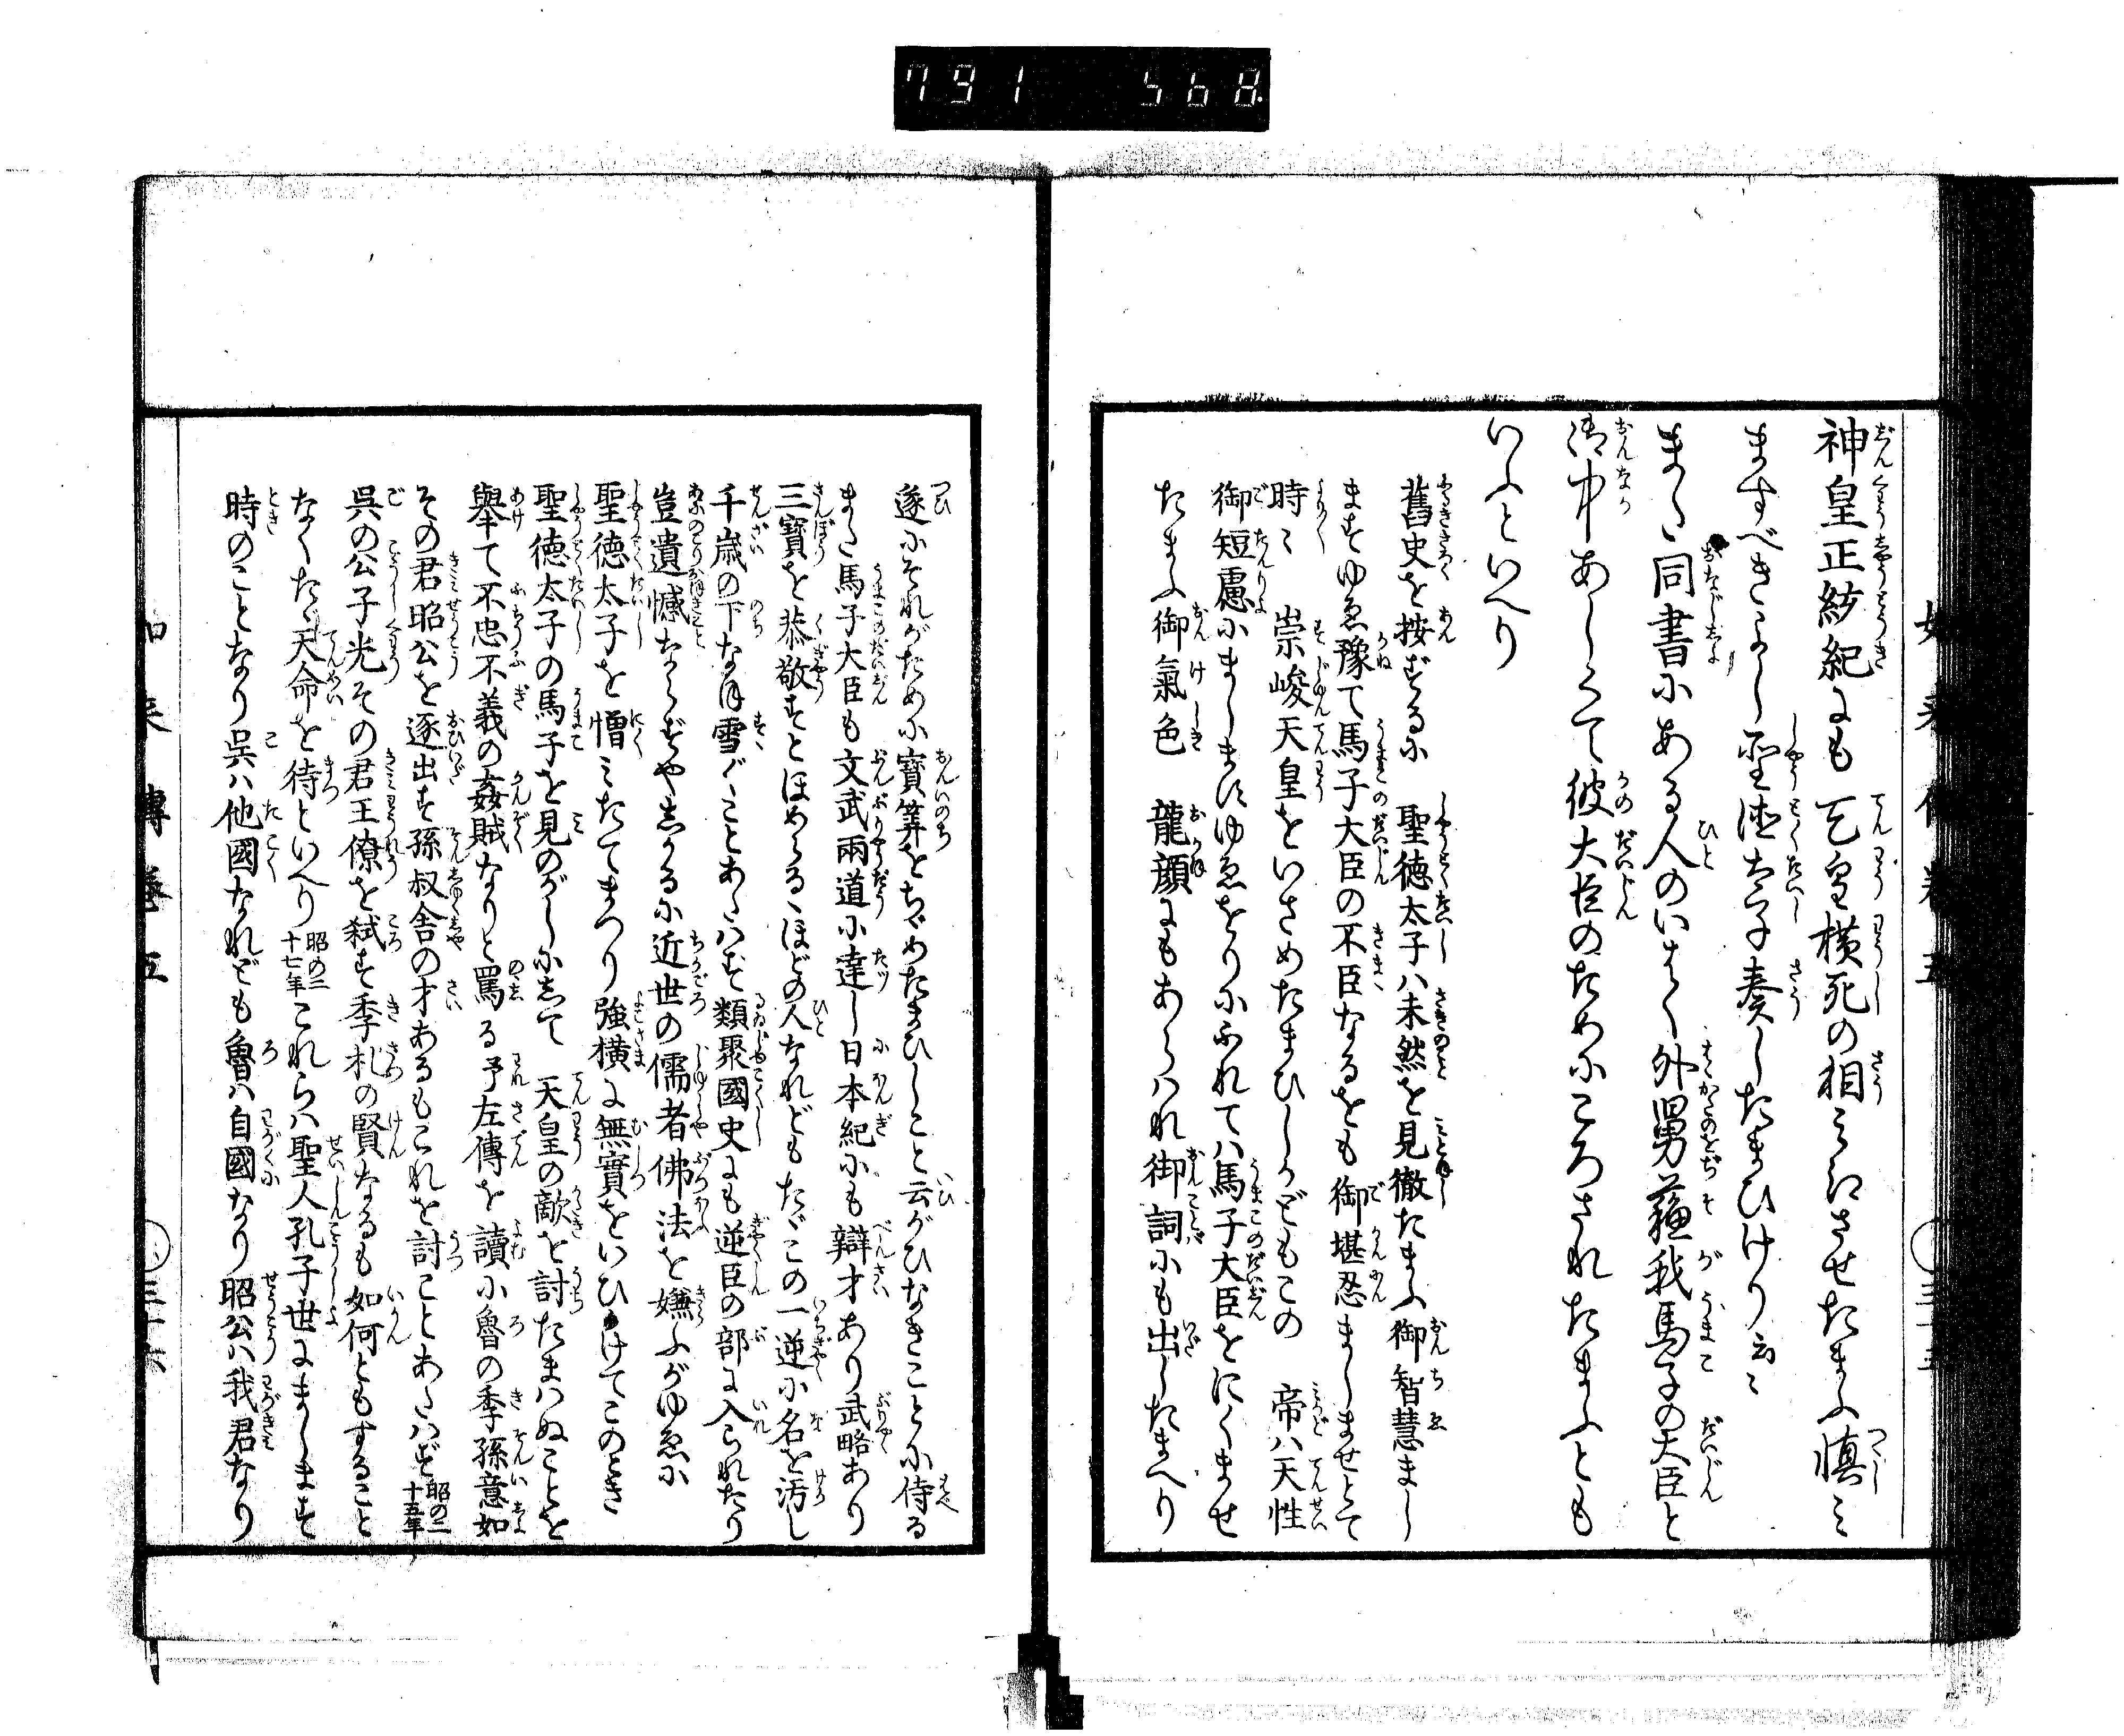 791 568
神皇正統紀にも 天皇横死の相みえさせたまふ慎み
ますべきよし聖徳太子奏したまひけり云々
また同書にある人のいはく外舅蘇我馬子の大臣と
御中あしくて彼大臣のためにころされたまふとも
いふといへり
舊史を按ずるに 聖徳太子ハ未然を見徹たまふ御智慧まし
ますゆゑ豫て馬子大臣の不臣なるをも御堪忍ましませとて
時々 崇峻天皇をいさめたまひしかどもこの 帝ハ天性
御短慮にましますゆゑをりにふれてハ馬子大臣をにくませ
たまふ御氣色 龍顔にもあらハれ御詞にも出したまへり
遂にそれがために寶算をちゞめたまひしこと云がひなきことに侍る
また馬子大臣も文武兩道に達し日本紀にも辯才あり武略あり
三寶を恭敬すとほめらるゝほどの人なれどもたゞこの一逆に名を汚し
千歳の下なほ雪ぐことあたハず類聚國史にも逆臣の部に入られたり
豈遺憾ならずやしかるに近世の儒者佛法を嫌ふがゆゑに
聖徳太子を憎みたてまつり強横に無實をいひかけてこのとき
聖徳太子の馬子を見のがしにして 天皇の敵を討たまハぬことを
擧て不忠不義の姦賊なりと罵る予左傳を讀に魯の季孫意如
その君昭公を逐出す孫叔舎の才あるもこれを討ことあたハず昭の二十五年
呉の公子光その君王僚を弑す季札の賢なるも如何ともすること
なくたゞ天命を待といへり昭の二十七年これらハ聖人孔子世にまします
時のことなり呉ハ他國なれども魯ハ自國なり昭公ハ我君なり